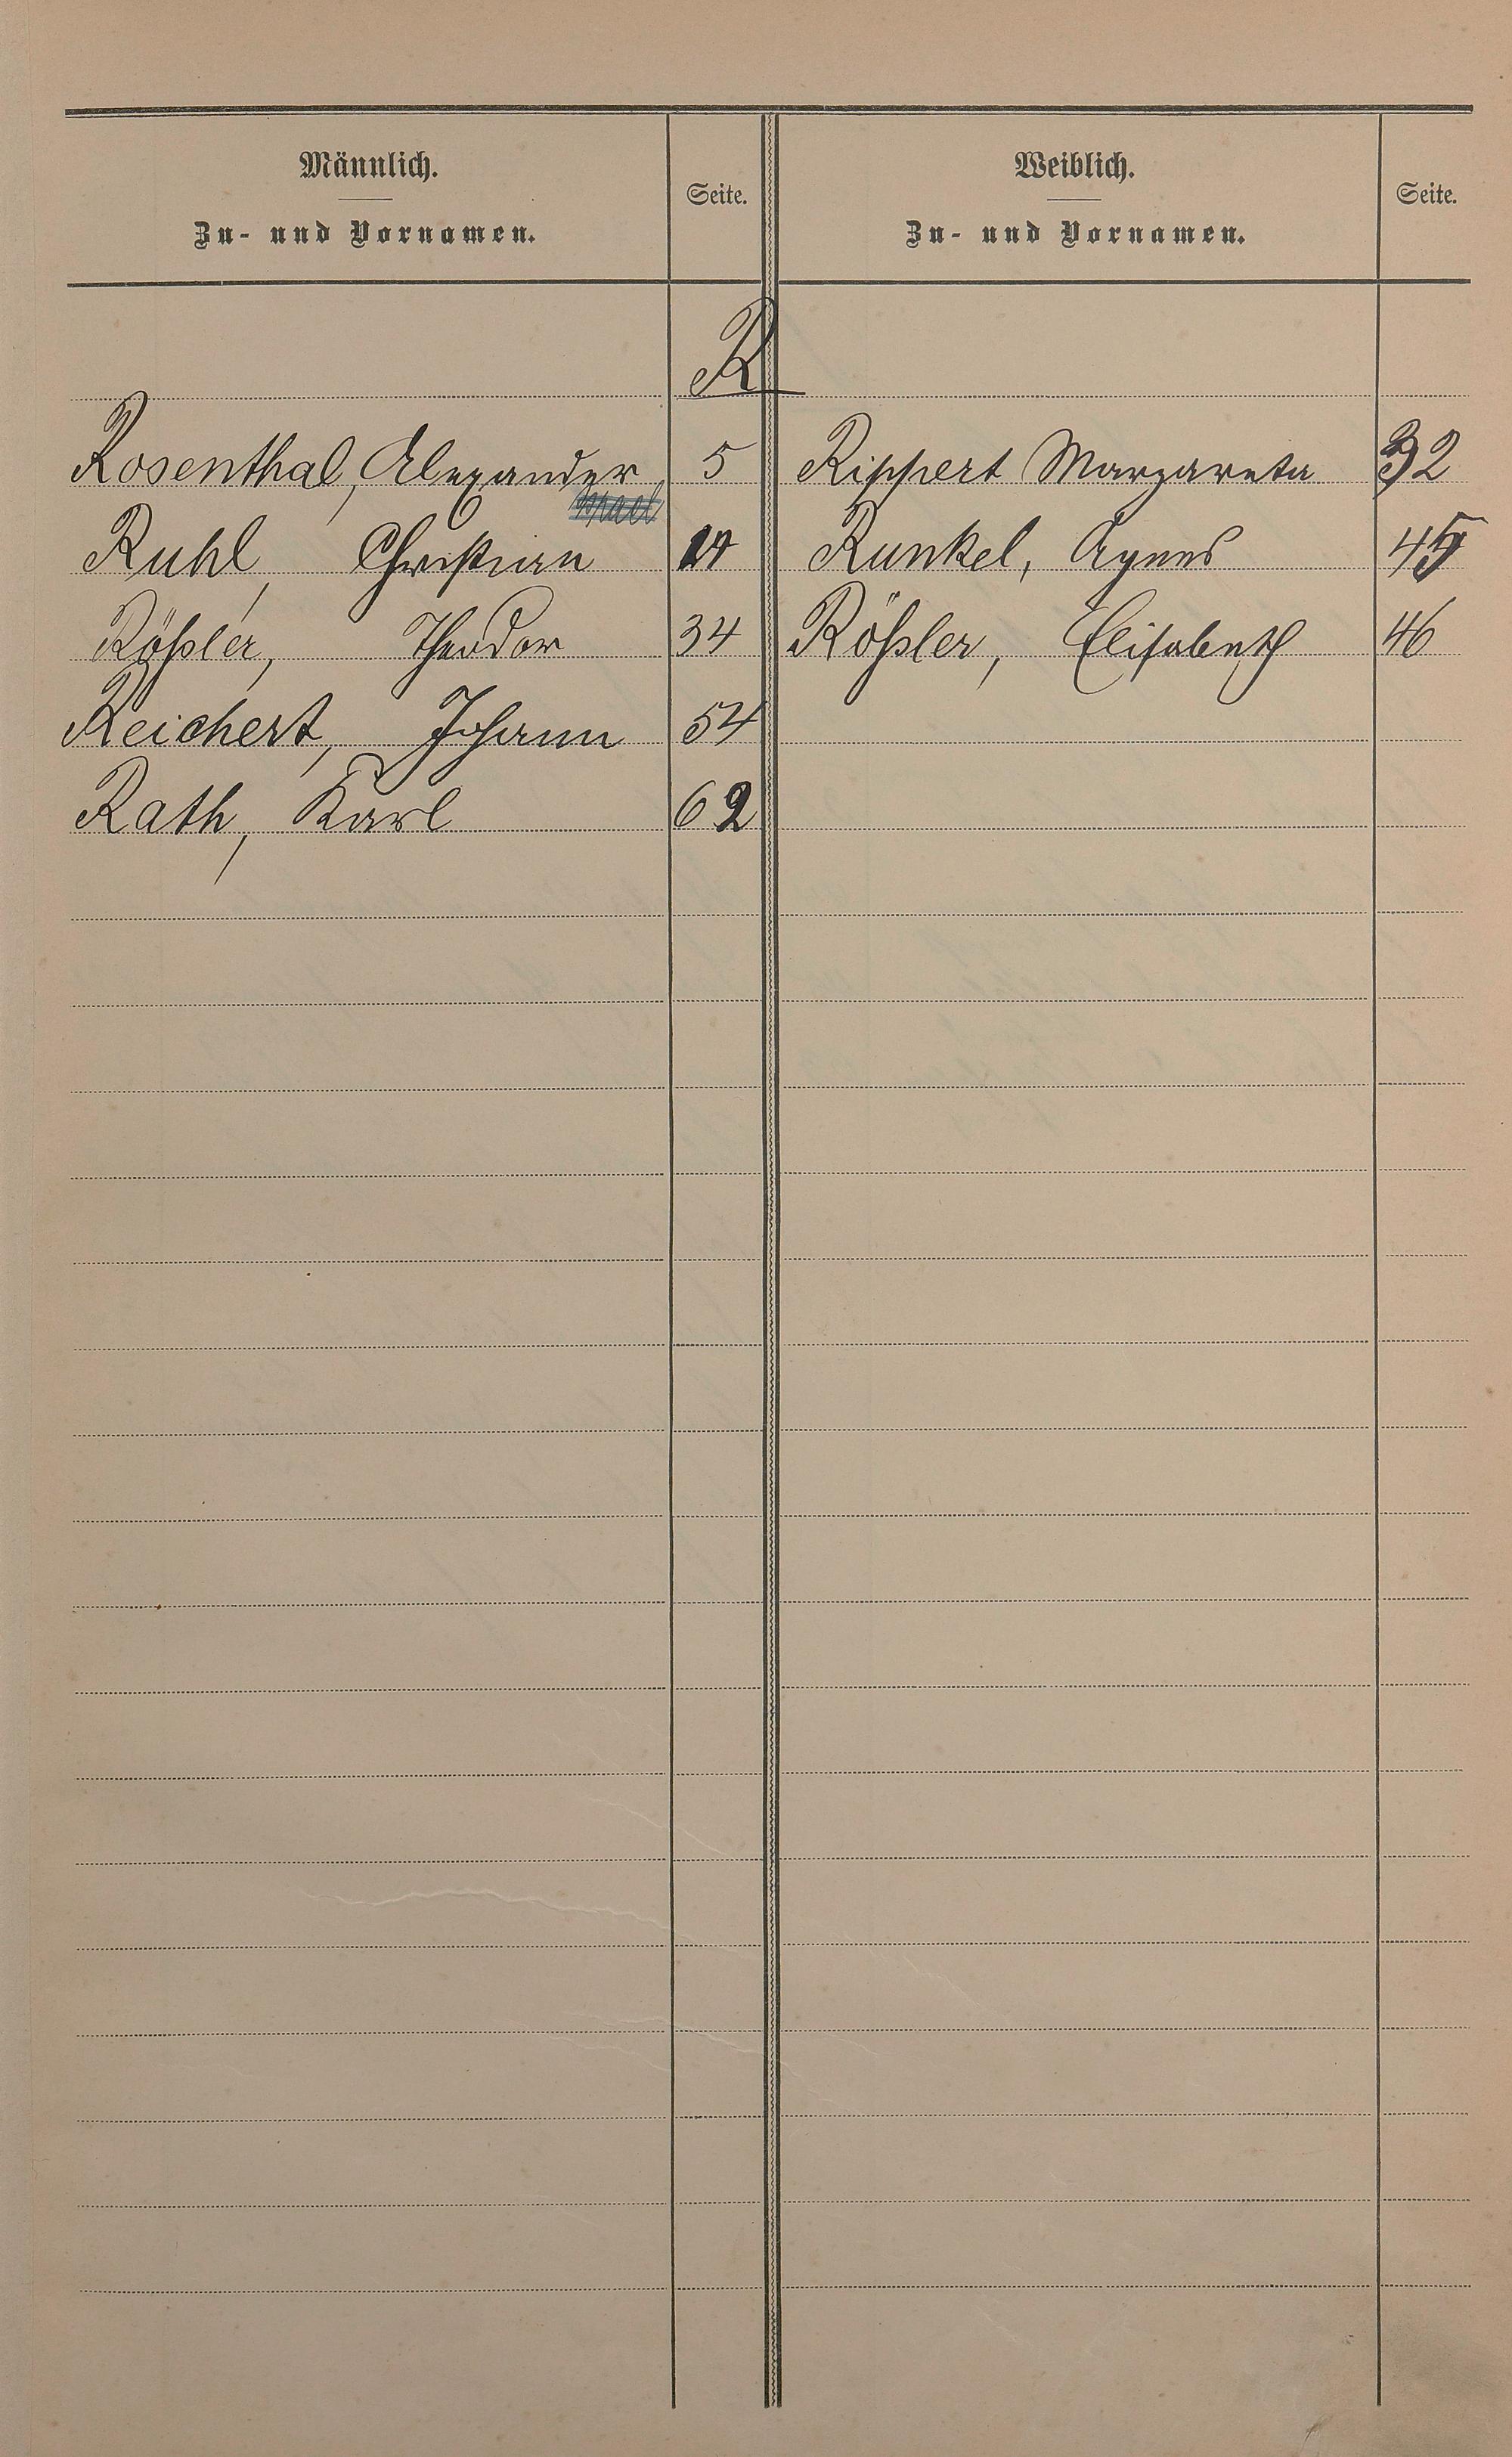 Männlich.
Zu- und Vornamen.
Seite.
Weiblich.
Zu- und Vornamen.
Seite.
R
Rosenthal, Alexander 5 Rippert Margareta 32
Israel
Ruhl, Christian Runkel, Agnes 45
Rößler, Theodor 34 Rößler, Elisabeth 46
Reichert, Johann 54
Rath, Karl 62